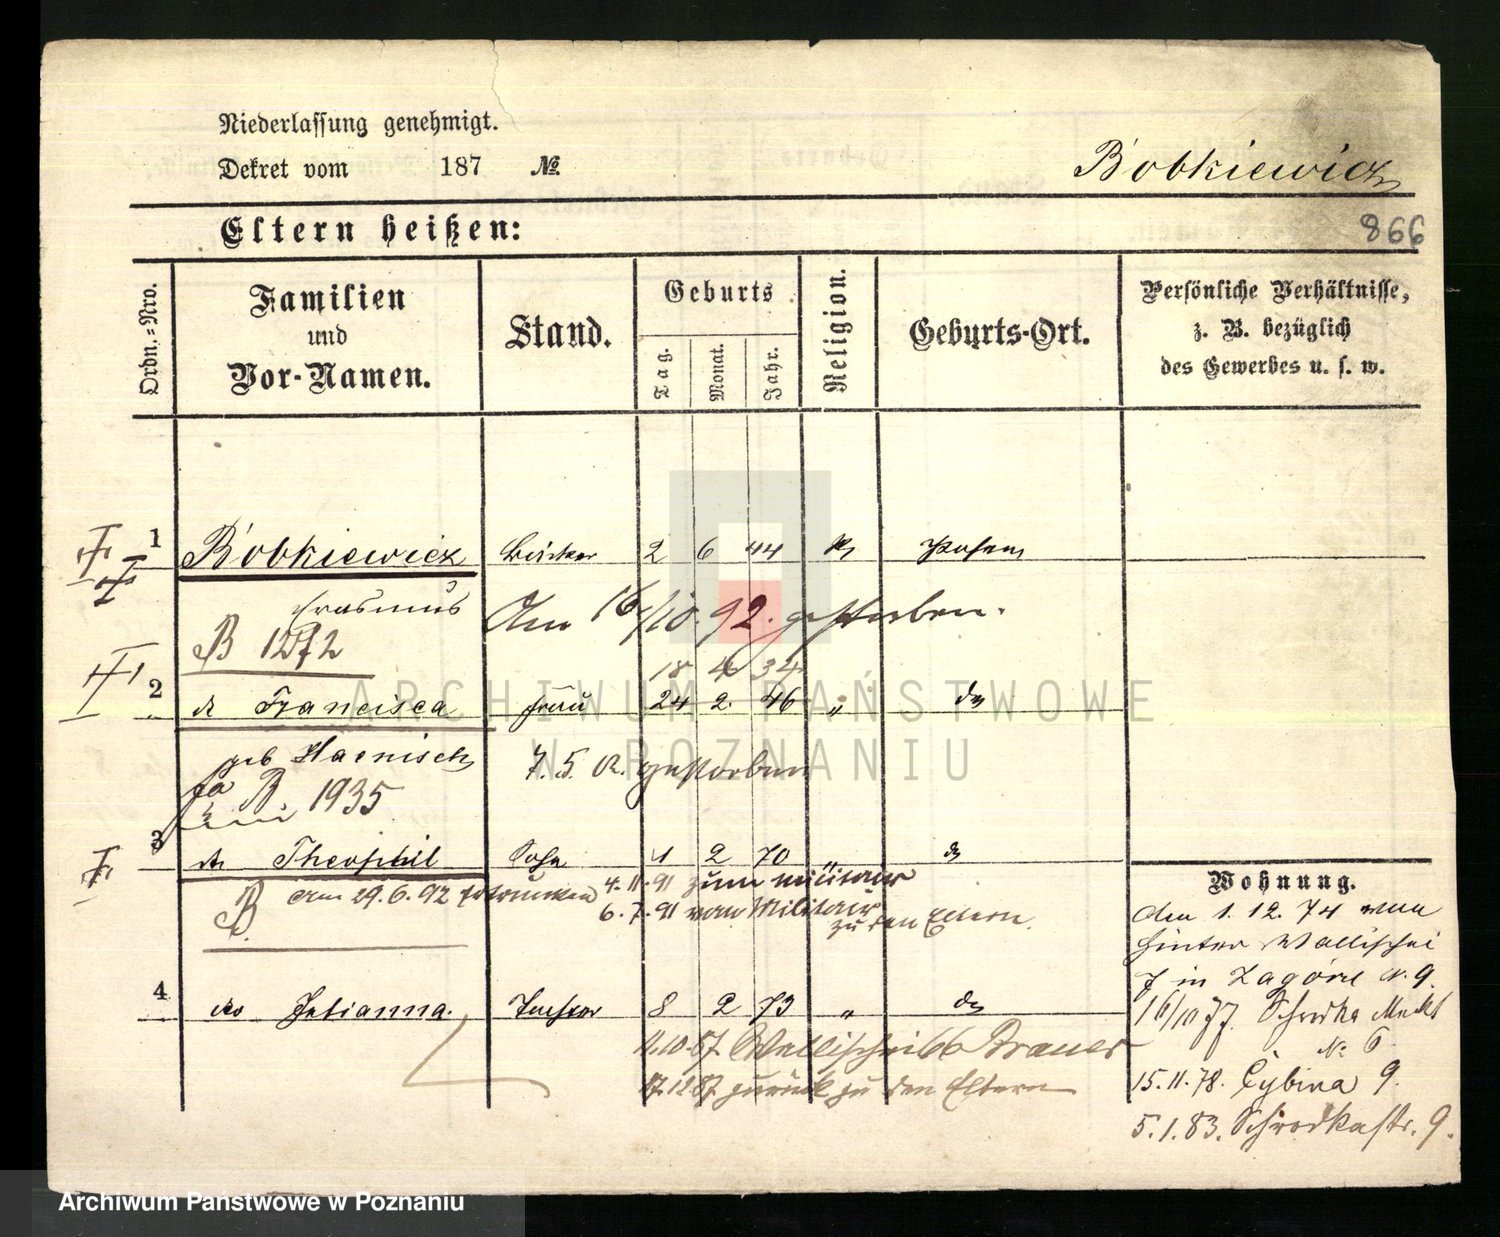 Niederlassung genehmigt.
Dekret vom 187 №
Bobkiewicz
Eltern heißen:
866
Ordn.-Nro.
Familien
und
Vor-Namen.
Stand.
Geburts
Tag. Monat. Jahr.
Religion.
Geburts-Ort.
Persönliche Verhältnisse,
z. B. bezüglich
des Gewerbes u. s. w.
1 Bobkiewicz 2 6 44 k Posen
Erasmus Am 16/10. 92. gestorben.
B 1272
18 4 34
2 Francisca Frau 24 2. 46 " do
geb Harnisch 7. 5. 02. gestorben
B. 1935
3 Theophil Sohn 1 2 70 " do
am 29.6.92 ertrunken 4.11.91 zum militair
B 6.7.91 vom Militair
zu den Eltern.
4 do Julianna. Tochter 8 2 73 " do
11.10.87 Wallischei 66 Brauer
17.12.87 zurück zu den Eltern
Wohnung.
den 1. 12. 74 von
hinter Wallischei
7 in Zagórze N. 9.
16/10 77. Schrodka Markt
N: 6
15.11.78. Cybina 9.
5.1.83. Schrodkastr. 9.
ARCHIWUM PAŃSTWOWE
W POZNANIU
Archiwum Państwowe w Poznaniu